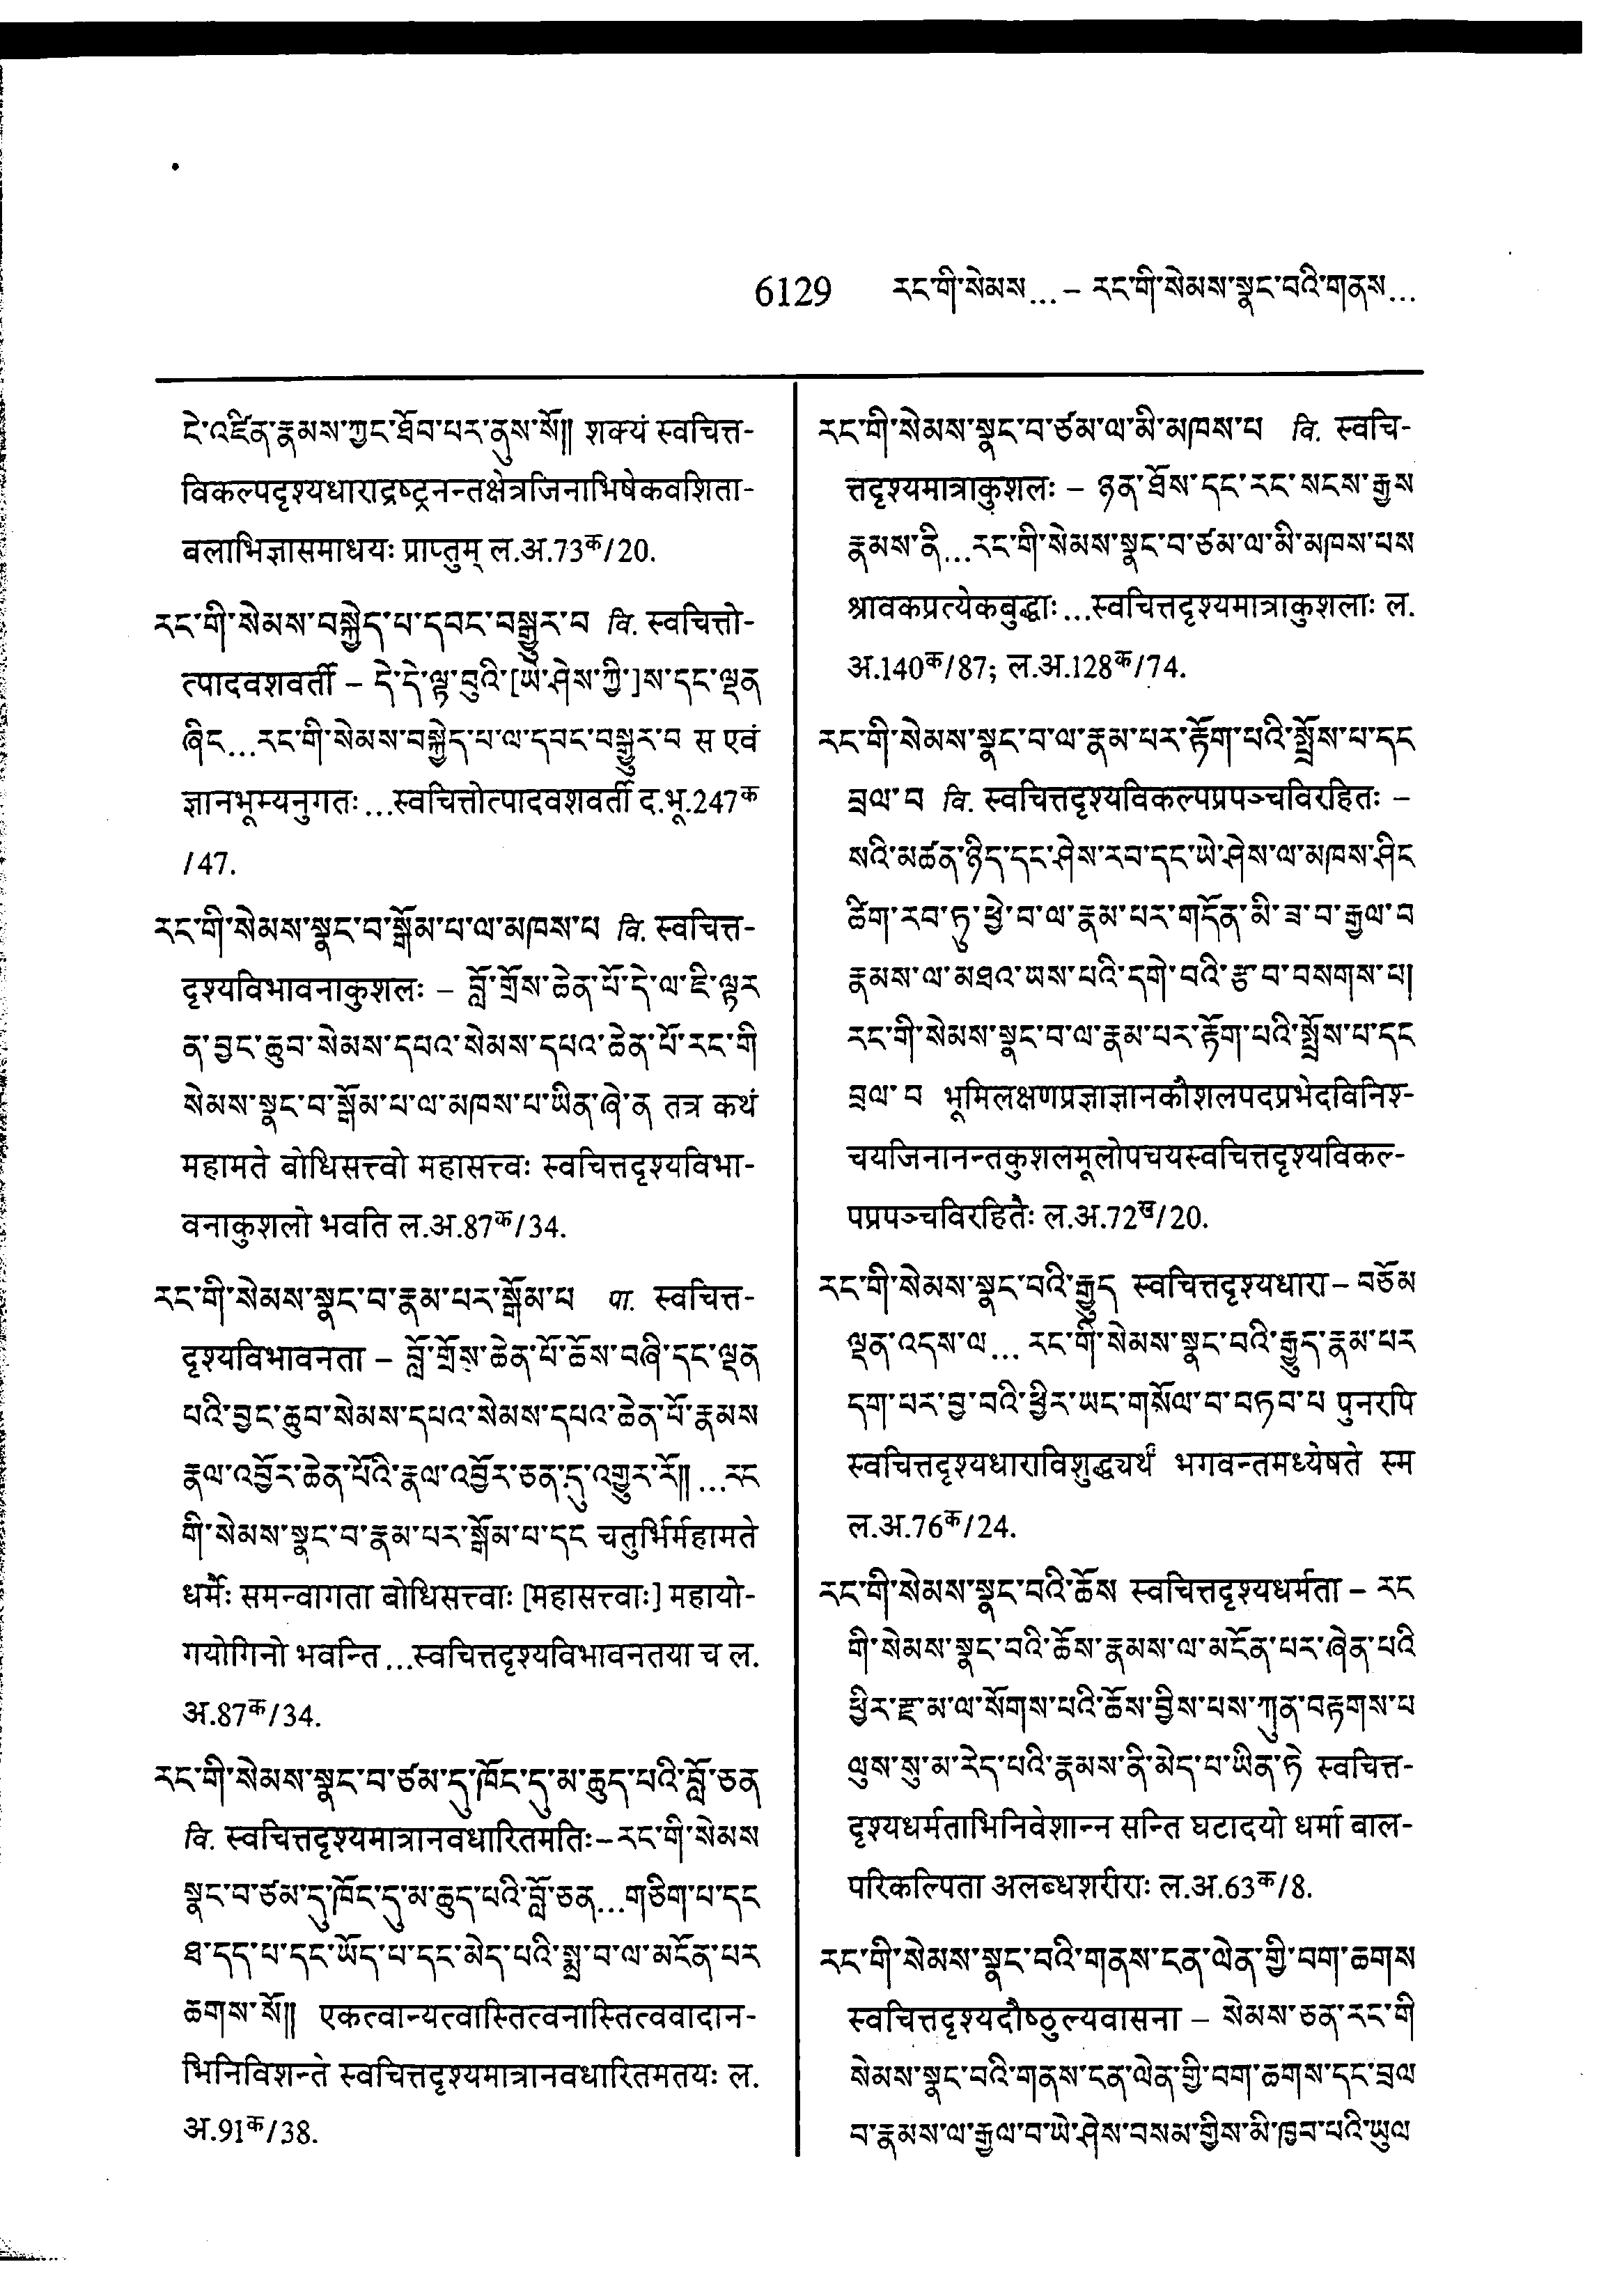 6129 རང་གི་སེམས...– རང་གི་སེམས་སྣང་བའི་གནས...
ངེ་འཛིན་རྣམས་ཀྱང་ཐོབ་པར་ནུས་སོ༎ शक्यं स्वचित्त-
विकल्पदृश्यधाराद्रष्ट्रनन्तक्षेत्रजिनाभिषेकवशिता-
बलाभिज्ञासमाधयः प्राप्तुम् ल.अ.73क/20.
རང་གི་སེམས་བསྐྱེད་པ་དབང་བསྒྱུར་བ वि. स्वचित्तो-
त्पादवशवर्ती – དེ་དེ་ལྟ་བུའི་[ཡེ་ཤེས་ཀྱི་]ས་དང་ལྡན
ཞིང...རང་གི་སེམས་བསྐྱེད་པ་ལ་དབང་བསྒྱུར་བ स एवं
ज्ञानभूम्यनुगतः...स्वचित्तोत्पादवशवर्ती द.भू.247क
/47.
རང་གི་སེམས་སྣང་བ་སྒོམ་པ་ལ་མཁས་པ वि. स्वचित्त-
दृश्यविभावनाकुशलः – བློ་གྲོས་ཆེན་པོ་དེ་ལ་ཇི་ལྟར
ན་བྱང་ཆུབ་སེམས་དཔའ་སེམས་དཔའ་ཆེན་པོ་རང་གི
སེམས་སྣང་བ་སྒོམ་པ་ལ་མཁས་པ་ཡིན་ཞེ་ན तत्र कथं
महामते बोधिसत्त्वो महासत्त्वः स्वचित्तदृश्यविभा-
वनाकुशलो भवति ल.अ.87क/34.
རང་གི་སེམས་སྣང་བ་རྣམ་པར་སྒོམ་པ पा. स्वचित्त-
दृश्यविभावनता – བློ་གྲོས་ཆེན་པོ་ཆོས་བཞི་དང་ལྡན
པའི་བྱང་ཆུབ་སེམས་དཔའ་སེམས་དཔའ་ཆེན་པོ་རྣམས
རྣལ་འབྱོར་ཆེན་པོའི་རྣལ་འབྱོར་ཅན་དུ་འགྱུར་རོ༎ ...རང
གི་སེམས་སྣང་བ་རྣམ་པར་སྒོམ་པ་དང चतुर्भिर्महामते
धर्मैः समन्वागता बोधिसत्त्वाः [महासत्त्वाः] महायो-
गयोगिनो भवन्ति...स्वचित्तदृश्यविभावनतया च ल.
अ.87क/34.
རང་གི་སེམས་སྣང་བ་ཙམ་དུ་ཁོང་དུ་མ་ཆུད་པའི་བློ་ཅན
वि. स्वचित्तदृश्यमात्रानवधारितमतिः– རང་གི་སེམས
སྣང་བ་ཙམ་དུ་ཁོང་དུ་མ་ཆུད་པའི་བློ་ཅན...གཅིག་པ་དང
ཐ་དད་པ་དང་ཡོད་པ་དང་མེད་པའི་སྨྲ་བ་ལ་མངོན་པར
ཆགས་སོ༎ एकत्वान्यत्वास्तित्वनास्तित्ववादान-
भिनिविशन्ते स्वचित्तदृश्यमात्रानवधारितमतयः ल.
अ.91क/38.
རང་གི་སེམས་སྣང་བ་ཙམ་ལ་མི་མཁས་པ वि. स्वचि-
त्तदृश्यमात्राकुशलः – ཉན་ཐོས་དང་རང་སངས་རྒྱས
རྣམས་ནི...རང་གི་སེམས་སྣང་བ་ཙམ་ལ་མི་མཁས་པས
श्रावकप्रत्येकबुद्धाः...स्वचित्तदृश्यमात्राकुशलाः ल.
अ.140क/87; ल.अ.128क/74.
རང་གི་སེམས་སྣང་བ་ལ་རྣམ་པར་རྟོག་པའི་སྤྲོས་པ་དང
བྲལ་བ वि. स्वचित्तदृश्यविकल्पप्रपञ्चविरहितः –
སའི་མཚན་ཉིད་དང་ཤེས་རབ་དང་ཡེ་ཤེས་ལ་མཁས་ཤིང
ཚིག་རབ་ཏུ་ཕྱེ་བ་ལ་རྣམ་པར་གདོན་མི་ཟ་བ་རྒྱལ་བ
རྣམས་ལ་མཐའ་ཡས་པའི་དགེ་བའི་རྩ་བ་བསགས་པ།
རང་གི་སེམས་སྣང་བ་ལ་རྣམ་པར་རྟོག་པའི་སྤྲོས་པ་དང
བྲལ་བ भूमिलक्षणप्रज्ञाज्ञानकौशलपदप्रभेदविनिश्-
चयजिनानन्तकुशलमूलोपचयस्वचित्तदृश्यविकल्-
पप्रपञ्चविरहितैः ल.अ.72ख/20.
རང་གི་སེམས་སྣང་བའི་རྒྱུད स्वचित्तदृश्यधारा – བཅོམ
ལྡན་འདས་ལ... རང་གི་སེམས་སྣང་བའི་རྒྱུད་རྣམ་པར
དག་པར་བྱ་བའི་ཕྱིར་ཡང་གསོལ་བ་བཏབ་པ पुनरपि
स्वचित्तदृश्यधाराविशुद्ध्यर्थं भगवन्तमध्येषते स्म
ल.अ.76क/24.
རང་གི་སེམས་སྣང་བའི་ཆོས स्वचित्तदृश्यधर्मता – རང
གི་སེམས་སྣང་བའི་ཆོས་རྣམས་ལ་མངོན་པར་ཞེན་པའི
ཕྱིར་རྫ་མ་ལ་སོགས་པའི་ཆོས་བྱིས་པས་ཀུན་བརྟགས་པ
ལུས་སུ་མ་རེད་པའི་རྣམས་ནི་མེད་པ་ཡིན་ཏེ स्वचित्त-
दृश्यधर्मताभिनिवेशान्न सन्ति घटादयो धर्मा बाल-
परिकल्पिता अलब्धशरीराः ल.अ.63क/8.
རང་གི་སེམས་སྣང་བའི་གནས་ངན་ལེན་གྱི་བག་ཆགས
स्वचित्तदृश्यदौष्ठुल्यवासना – སེམས་ཅན་རང་གི
སེམས་སྣང་བའི་གནས་ངན་ལེན་གྱི་བག་ཆགས་དང་བྲལ
བ་རྣམས་ལ་རྒྱལ་བ་ཡེ་ཤེས་བསམ་གྱིས་མི་ཁྱབ་པའི་ཡུལ